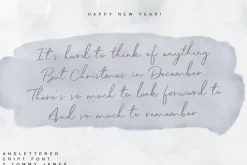 HAPPY NEW YEAR!
It's hard to think of anything
But Christmas in December
There's so much to look forward to
And so much to remember.
ANDLETTERED
CRIPT FONT
Y TOMMY JAMES